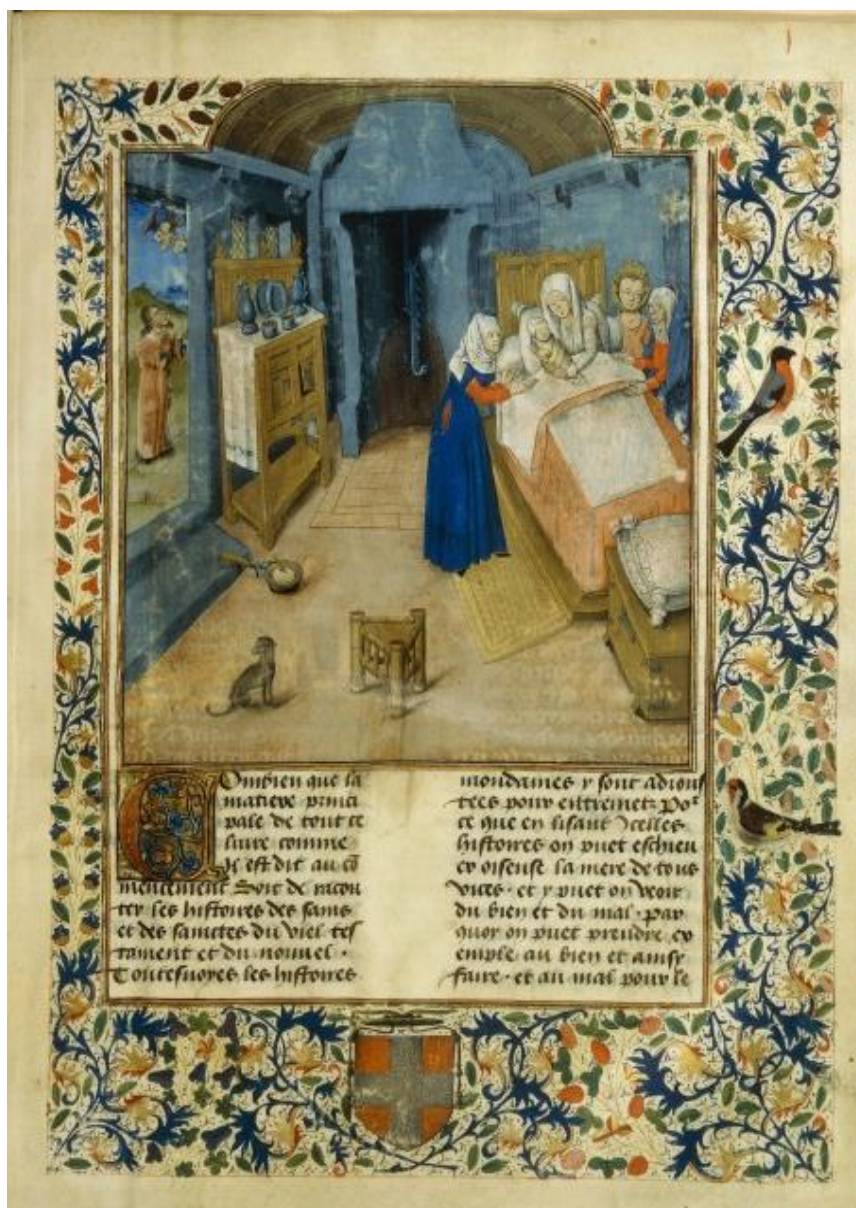 Ombien que la
matiere princi
pale de tout ce
livre comme
Il est dit au cō
mencement Soit de racon
ter les histoires des sains
et des sainctes du viel tes
tament et du nouuel .
Toutesuoyes les histoires
mondaines y sont adious
tees pour entremetz Po2
ce que en lisant Icelles
histoires on puet eschieu
er oiseuse la mere de tous
vices . et y puet on veoir
du bien et du mal . par
quoy on puet prendre ex
emple au bien et ainsy
faire . et au mal pour le